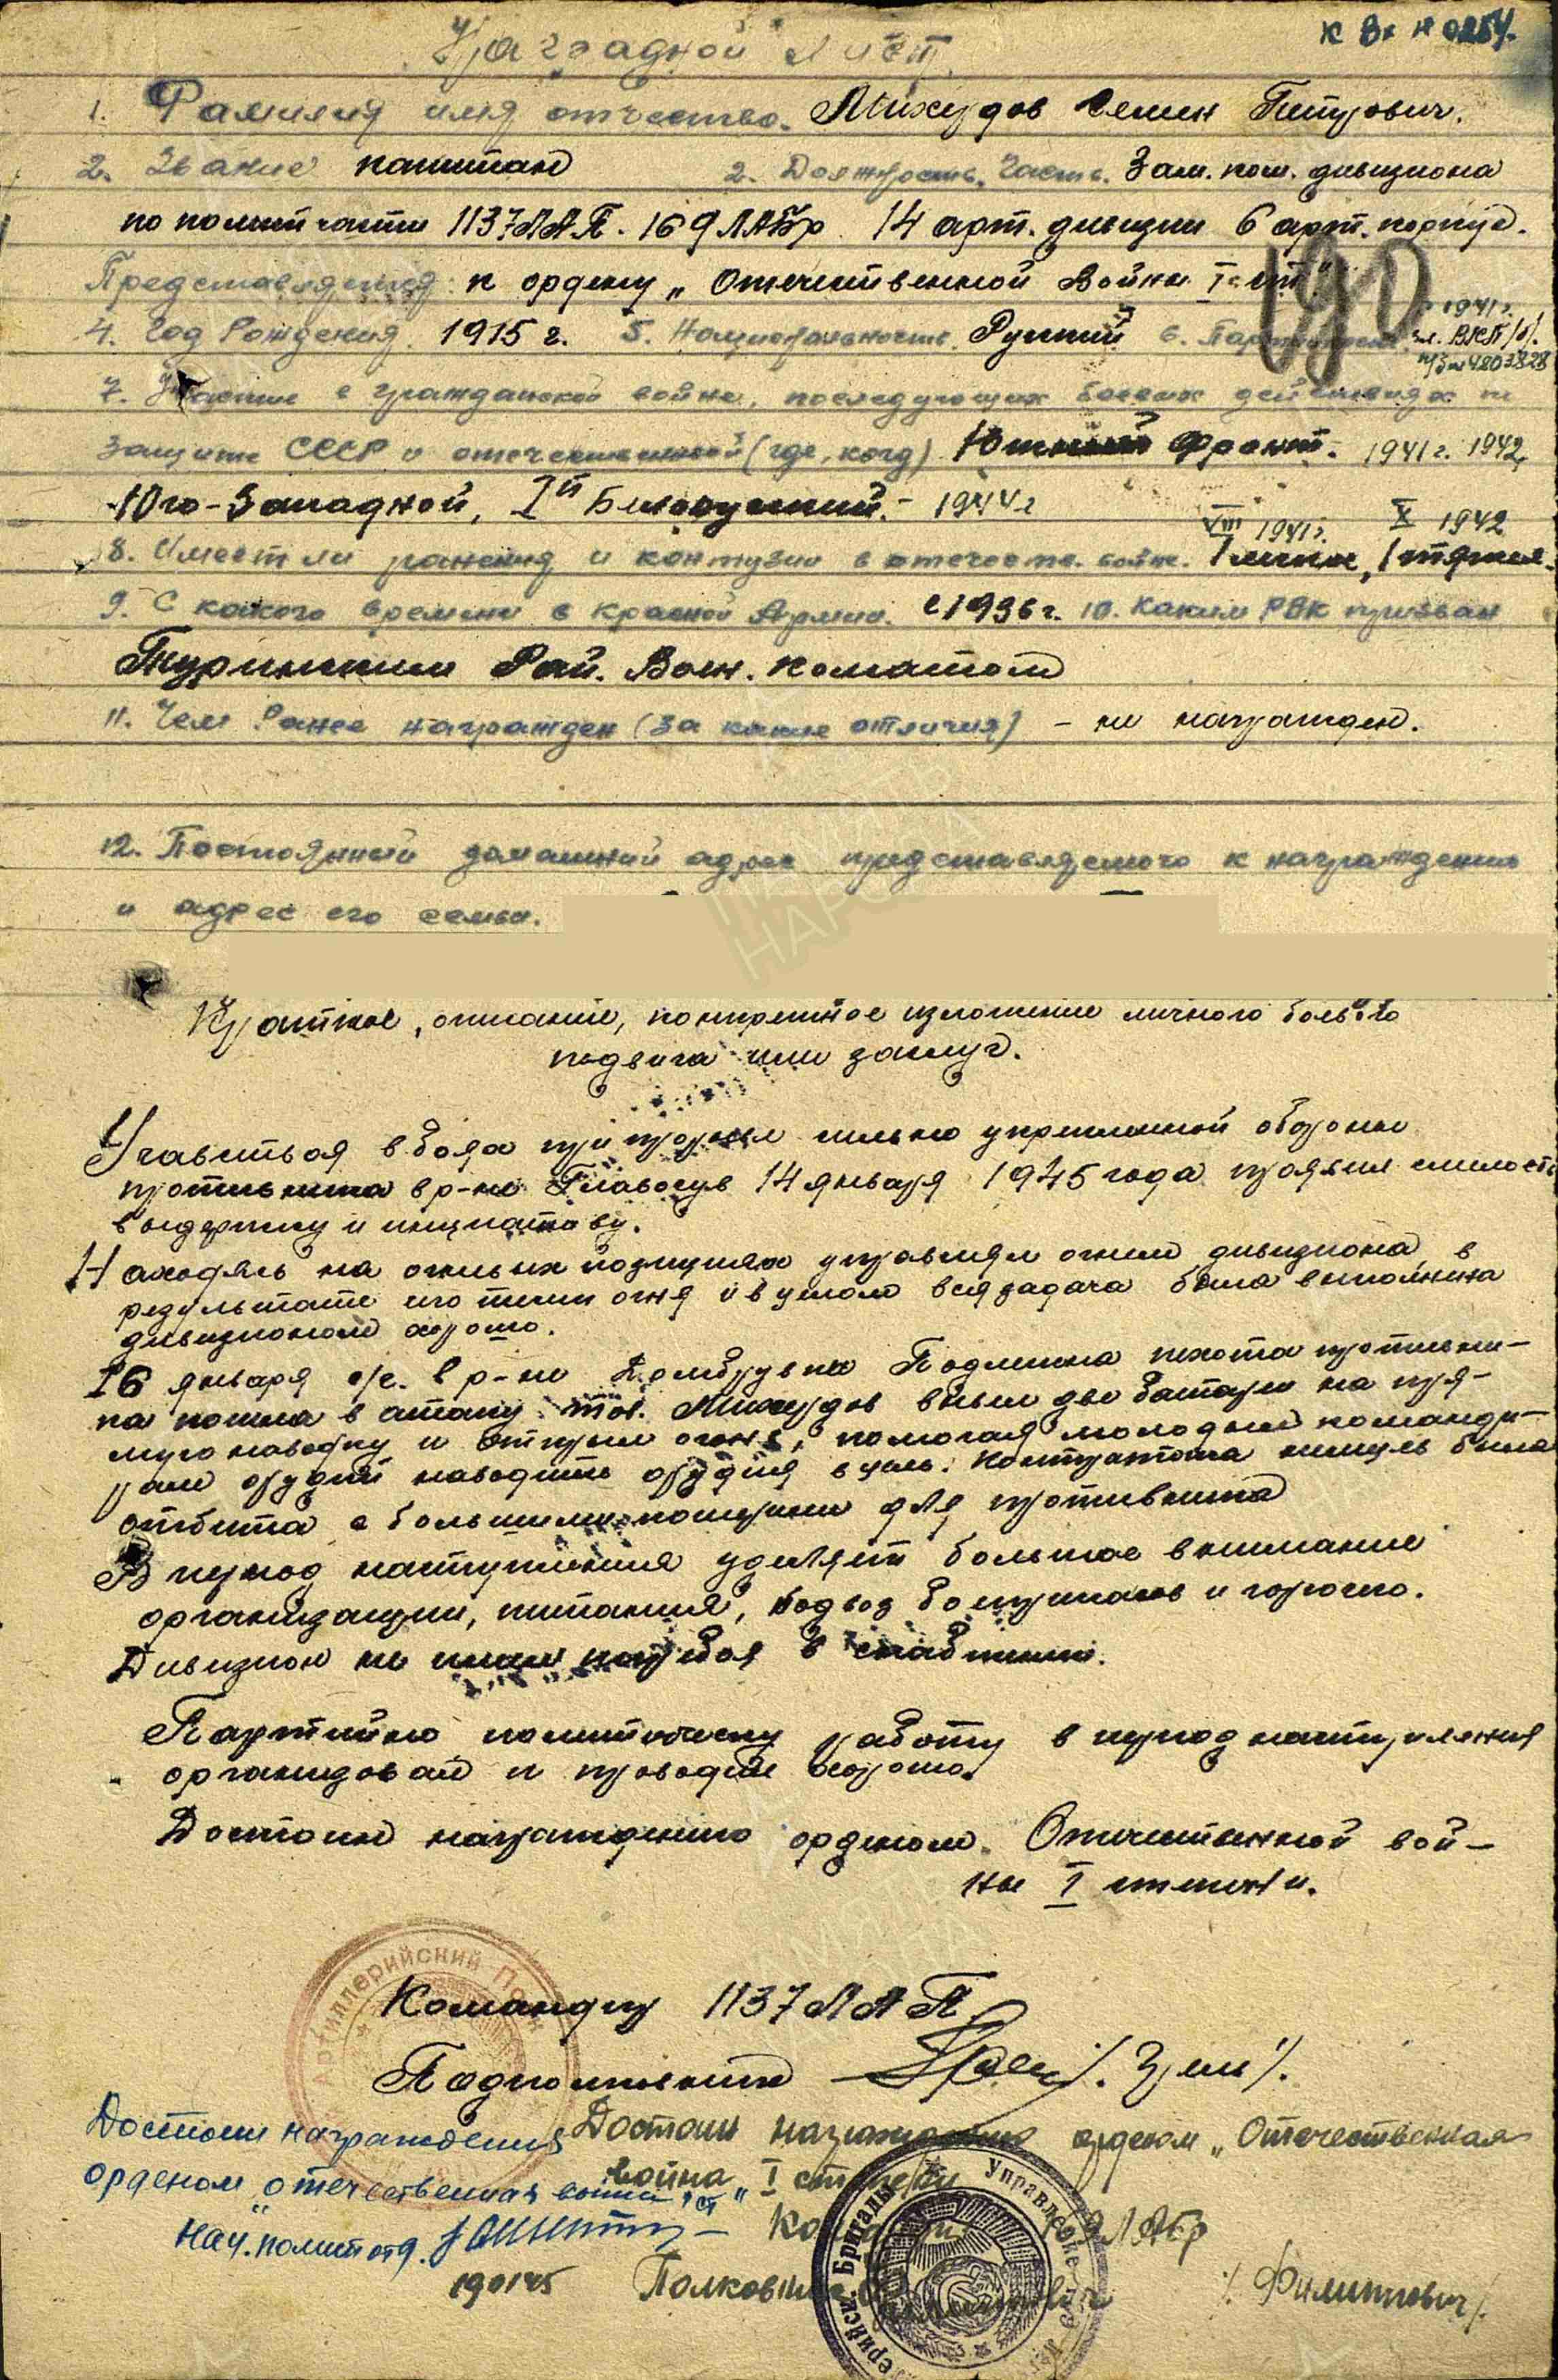 К Вх №
Наградной лист
1. Фамилия имя отчество. Михеудов Семен Петрович.
2. Звание капитан 2. Должность, часть. Зам. ком. дивизиона
по политчасти 1137 ЛАП. 169 ЛАБр 14 арт. дивизии 6 арт. корпус.
Представляется к ордену „Отечественной Войны I ст"
190
4. Год Рождения. 1915 г. 5. Национальность. Русский 6. Партийность с 1941 г.
чл. ВКП/б/.
п/б № 4803828
7. Участие в гражданской войне, последующих боевых действиях по
защите СССР и отечественной (где, когд) Южный фронт. 1941 г. 1942,
Юго-Западной, Iй Белорусский. - 1944 г
VIII 1941 г. X 1942
8. Имеет ли ранения и контузии в отечеств. войне. 1 легкое, 1 тяжел.
9. С какого времени в красной Армии. с 1936 г. 10. Каким РВК призван
Туринским Рай. Воен. Коматом
11. Чем Ранее награжден (за какие отличия) – не награжден.
12. Постоянный домашний адрес представляемого к награждению
и адрес его семьи.
Краткое, описание, конкретное изложение личного боевого
подвига или заслуг.
Участвуя в боях при прорыве сильно укрепленной обороны
противника в р-не 14 января 1945 года проявил смелость
выдержку и инициативу.
Находясь на огневых позициях управлял огнем дивизиона в
результате его огня и в целом вся задача была выполнена
дивизионом хорошо.
16 января с/г. в р-не Домбрувка Подлешна пехота противни-
ка пошла в атаку. тов. Михеудов вывел две батареи на пря-
мую наводку и открыл огонь, помогая молодым команди-
рам орудий наводить орудия в цель. Контратака немцев была
отбита с большими потерями для противника
В период наступления уделяет большое внимание
организации, питания, подвоз боеприпасов и горючего.
Дивизион не имел перебоя в снабжении.
Партийно политическую работу в период наступления
организовал и проводил хорошо.
Достоин награждению орденом. Отечественной вой-
ны I степени.
Артиллерийский Полк
Командир 1137 ЛАП
Подполковник
Достоин награждения
орденом „отечественная война I ст"
Нач. полит отд.
190145
Достоин награждения орденом „Отечественная
война „ I степени
Командир 169 ЛАБр
Полковник /Филиппович/.
Управление
Бригады
ПАМЯТЬ
НАРОДА